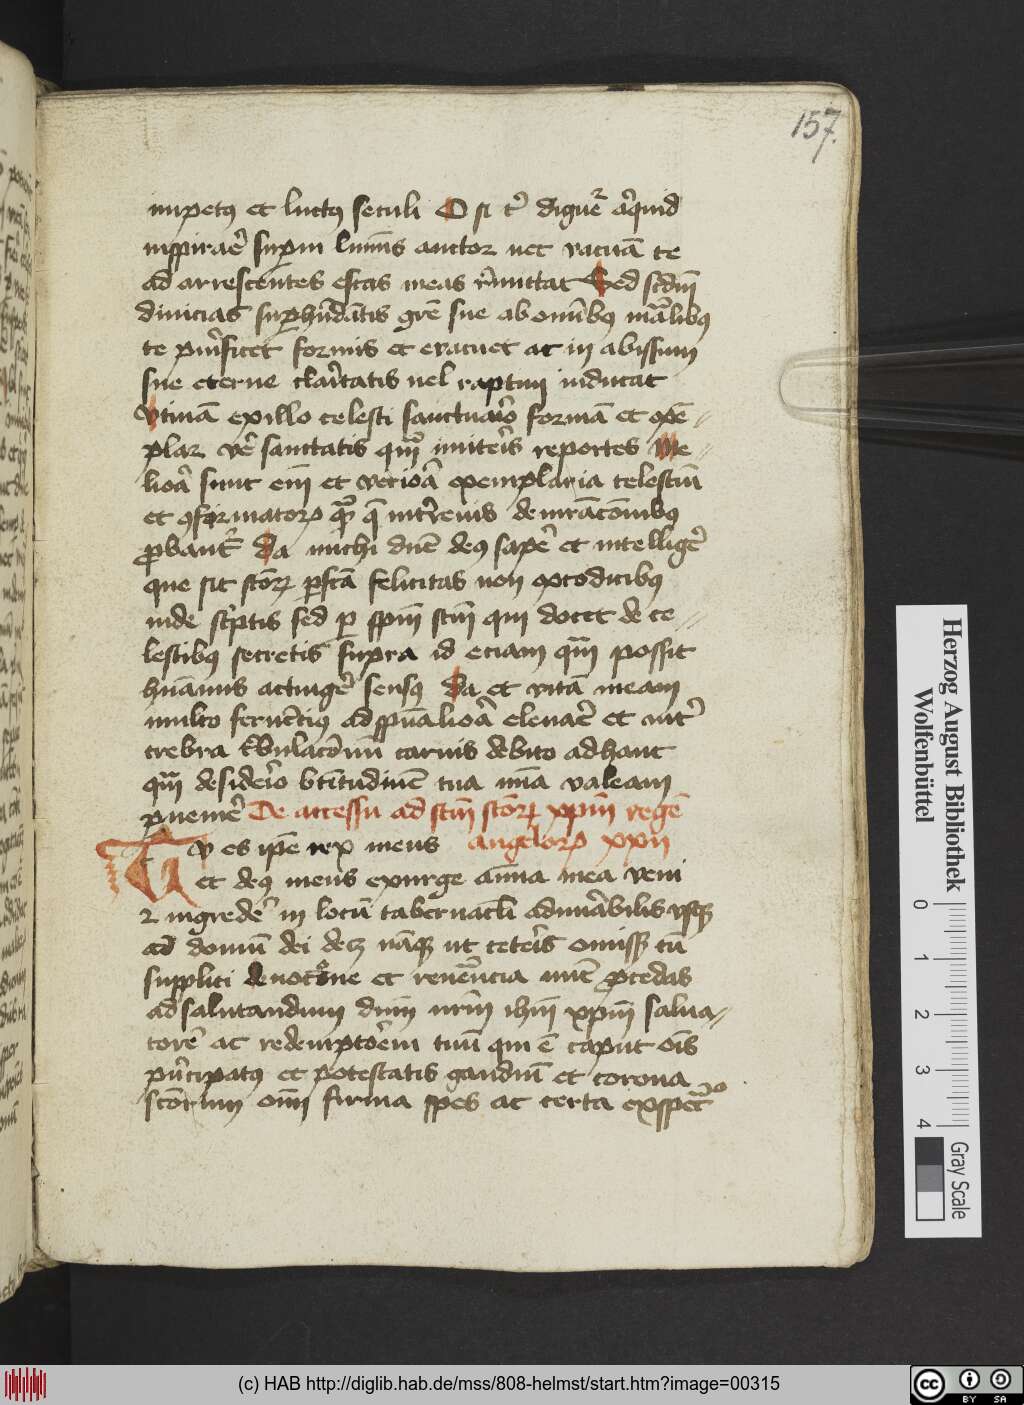 157.
impetus et luctus seculi O si tibi dignetur aliquid
inspirare supremi luminis auctor nec vacuam te
ad arescentes escas meas remittat Sed secundum
divicias superhabundantis gratie sue ab omnibus malibus
te purificet formis et evacuet ac in abissum
sue eterne claritatis vel raptim inducat
Utinam ex illo celesti sanctuario formam et exem-
plar vere sanctitatis quam imiteris reportes Me-
liora sunt enim et veriora exemplaria celestium
et conformatorum quam que in terrenis demonstracionibus
probantur Da michi domine deus sapere et intelligere
que sit sanctorum perfecta felicitas non ex codicibus
inde scriptis sed per spiritum sanctum qui docet de ce-
lestibus secretis supra id eciam quam possit
humanus actingere sensus Da et vitam meam
multo ferventius ad spiritualiora elevare et inter
crebra tribulacionum carnis debito adhanc
quam desidero beatitudinem tua misericordia valeam
pervenire De accessu ad sanctum sanctorum christum regem
Tu es ipse rex meus angelorum xxii
et deus meus exurge anima mea veni
et ingredere in locum tabernaculi admirabilis usque
ad domum dei
ut ceteris omissis cum
supplici devotione et reverencia
procedas
ad salutandum dominum nostrum ihesum christum salva-
torem ac redemptorem tuum qui est caput omnis
principatus et potestatis gaudium et corona
sanctorum omnium firma spes ac certa expectatio
Herzog August Bibliothek
Wolfenbüttel
0 1 2 3 4
Gray Scale
(c) HAB http://diglib.hab.de/mss/808-helmst/start.htm?image=00315
cc BY SA